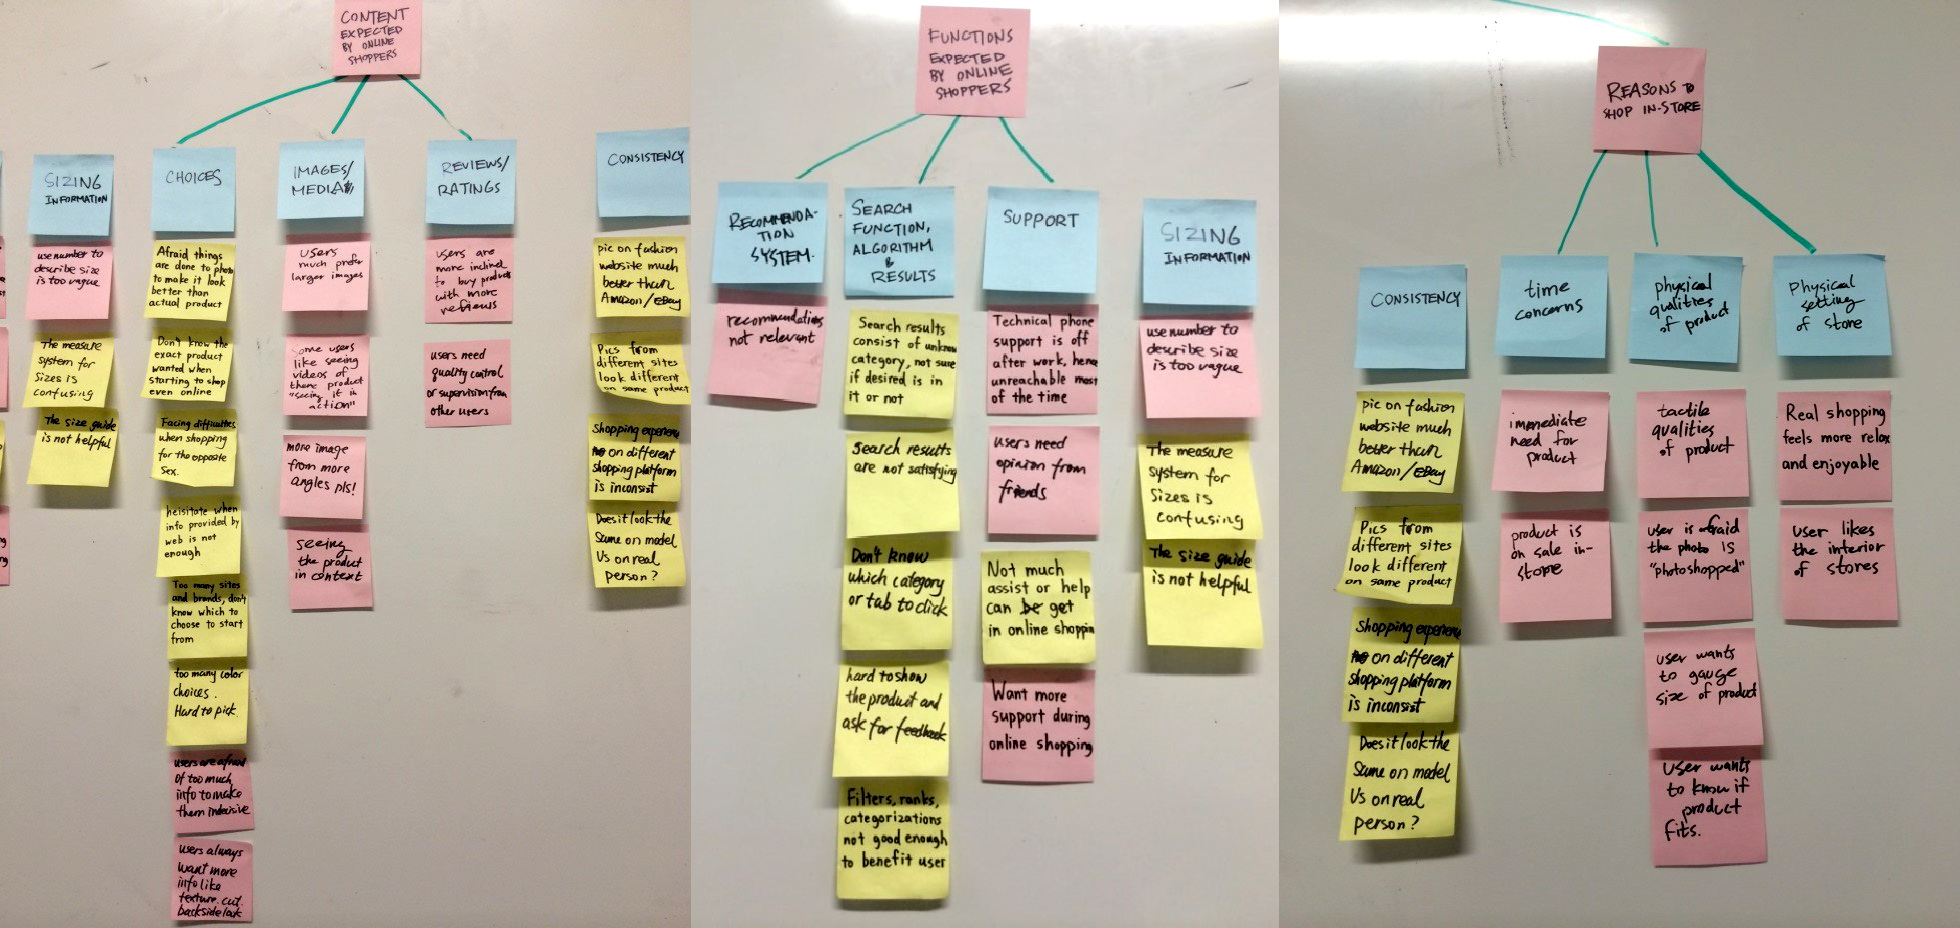 CONTENT
EXPECTED
BY ONLINE
SHOPPERS
SIZING
INFORMATION
use number to
describe size
is too vague
The measure
system for
Sizes is
confusing
The size guide
is not helpful
CHOICES
Afraid things
are done to photo
to make it look
better than
actual product
Don't know the
exact product
wanted when
starting to shop
even online
Facing difficulties
when shopping
for the opposite
sex.
heisitate when
info provided by
web is not
enough
Too many sites
and brands, don't
know which to
choose to start
from
too many color
choices.
Hard to pick
users are afraid
of too much
info to make
them indecisive
users always
want more
info like
texture. cut.
backside look
IMAGES/
MEDIA
users
much prefer
larger images
Some users
like seeing
videos of
product
"seeing it in
action"
more image
from more
angles pls!
seeing
the product
in context
REVIEWS/
RATINGS
users are
more inclined
to buy products
with more
reviews
users need
quality control
or supervision from
other users
CONSISTENCY
pic on fashion
website much
better than
Amazon/EBay
Pics from
different sites
look different
on same product
Shopping experience
on different
shopping platform
is inconsist
Does it look the
Same on model
Vs on real
person?
FUNCTIONS
EXPECTED
BY ONLINE
SHOPPERS
RECOMMENDA-
TION
SYSTEM.
recommendations
not relevant
SEARCH
FUNCTION,
ALGORITHM
&
RESULTS
Search results
consist of unknown
category, not sure
if desired is in
it or not
Search results
are not satisfying
Don't know
which category
or tab to click
hard to show
the product and
ask for feedback
Filters, ranks,
categorizations
not good enough
to benefit user
SUPPORT
Technical phone
support is off
after work, hence
unreachable most
of the time
users need
opinion from
friends
Not much
assist or help
can be get
in online shoppin
Want more
support during
online shopping
SIZING
INFORMATION
use number to
describe size
is too vague
The measure
system for
Sizes is
confusing
The size guide
is not helpful
REASONS TO
SHOP IN-STORE
CONSISTENCY
pic on fashion
website much
better than
Amazon/EBay
Pics from
different sites
look different
on same product
Shopping experience
on different
shopping platform
is inconsist
Does it look the
Same on model
Vs on real
person?
time
concerns
immediate
need for
product
product is
on sale in-
store
physical
qualities
of product
tactile
qualities
of product
user is afraid
the photo is
"photoshopped"
user wants
to gauge
size of product
user wants
to know if
product
fits.
physical
setting
of store
Real shopping
feels more relax
and enjoyable
user likes
the interior
of stores